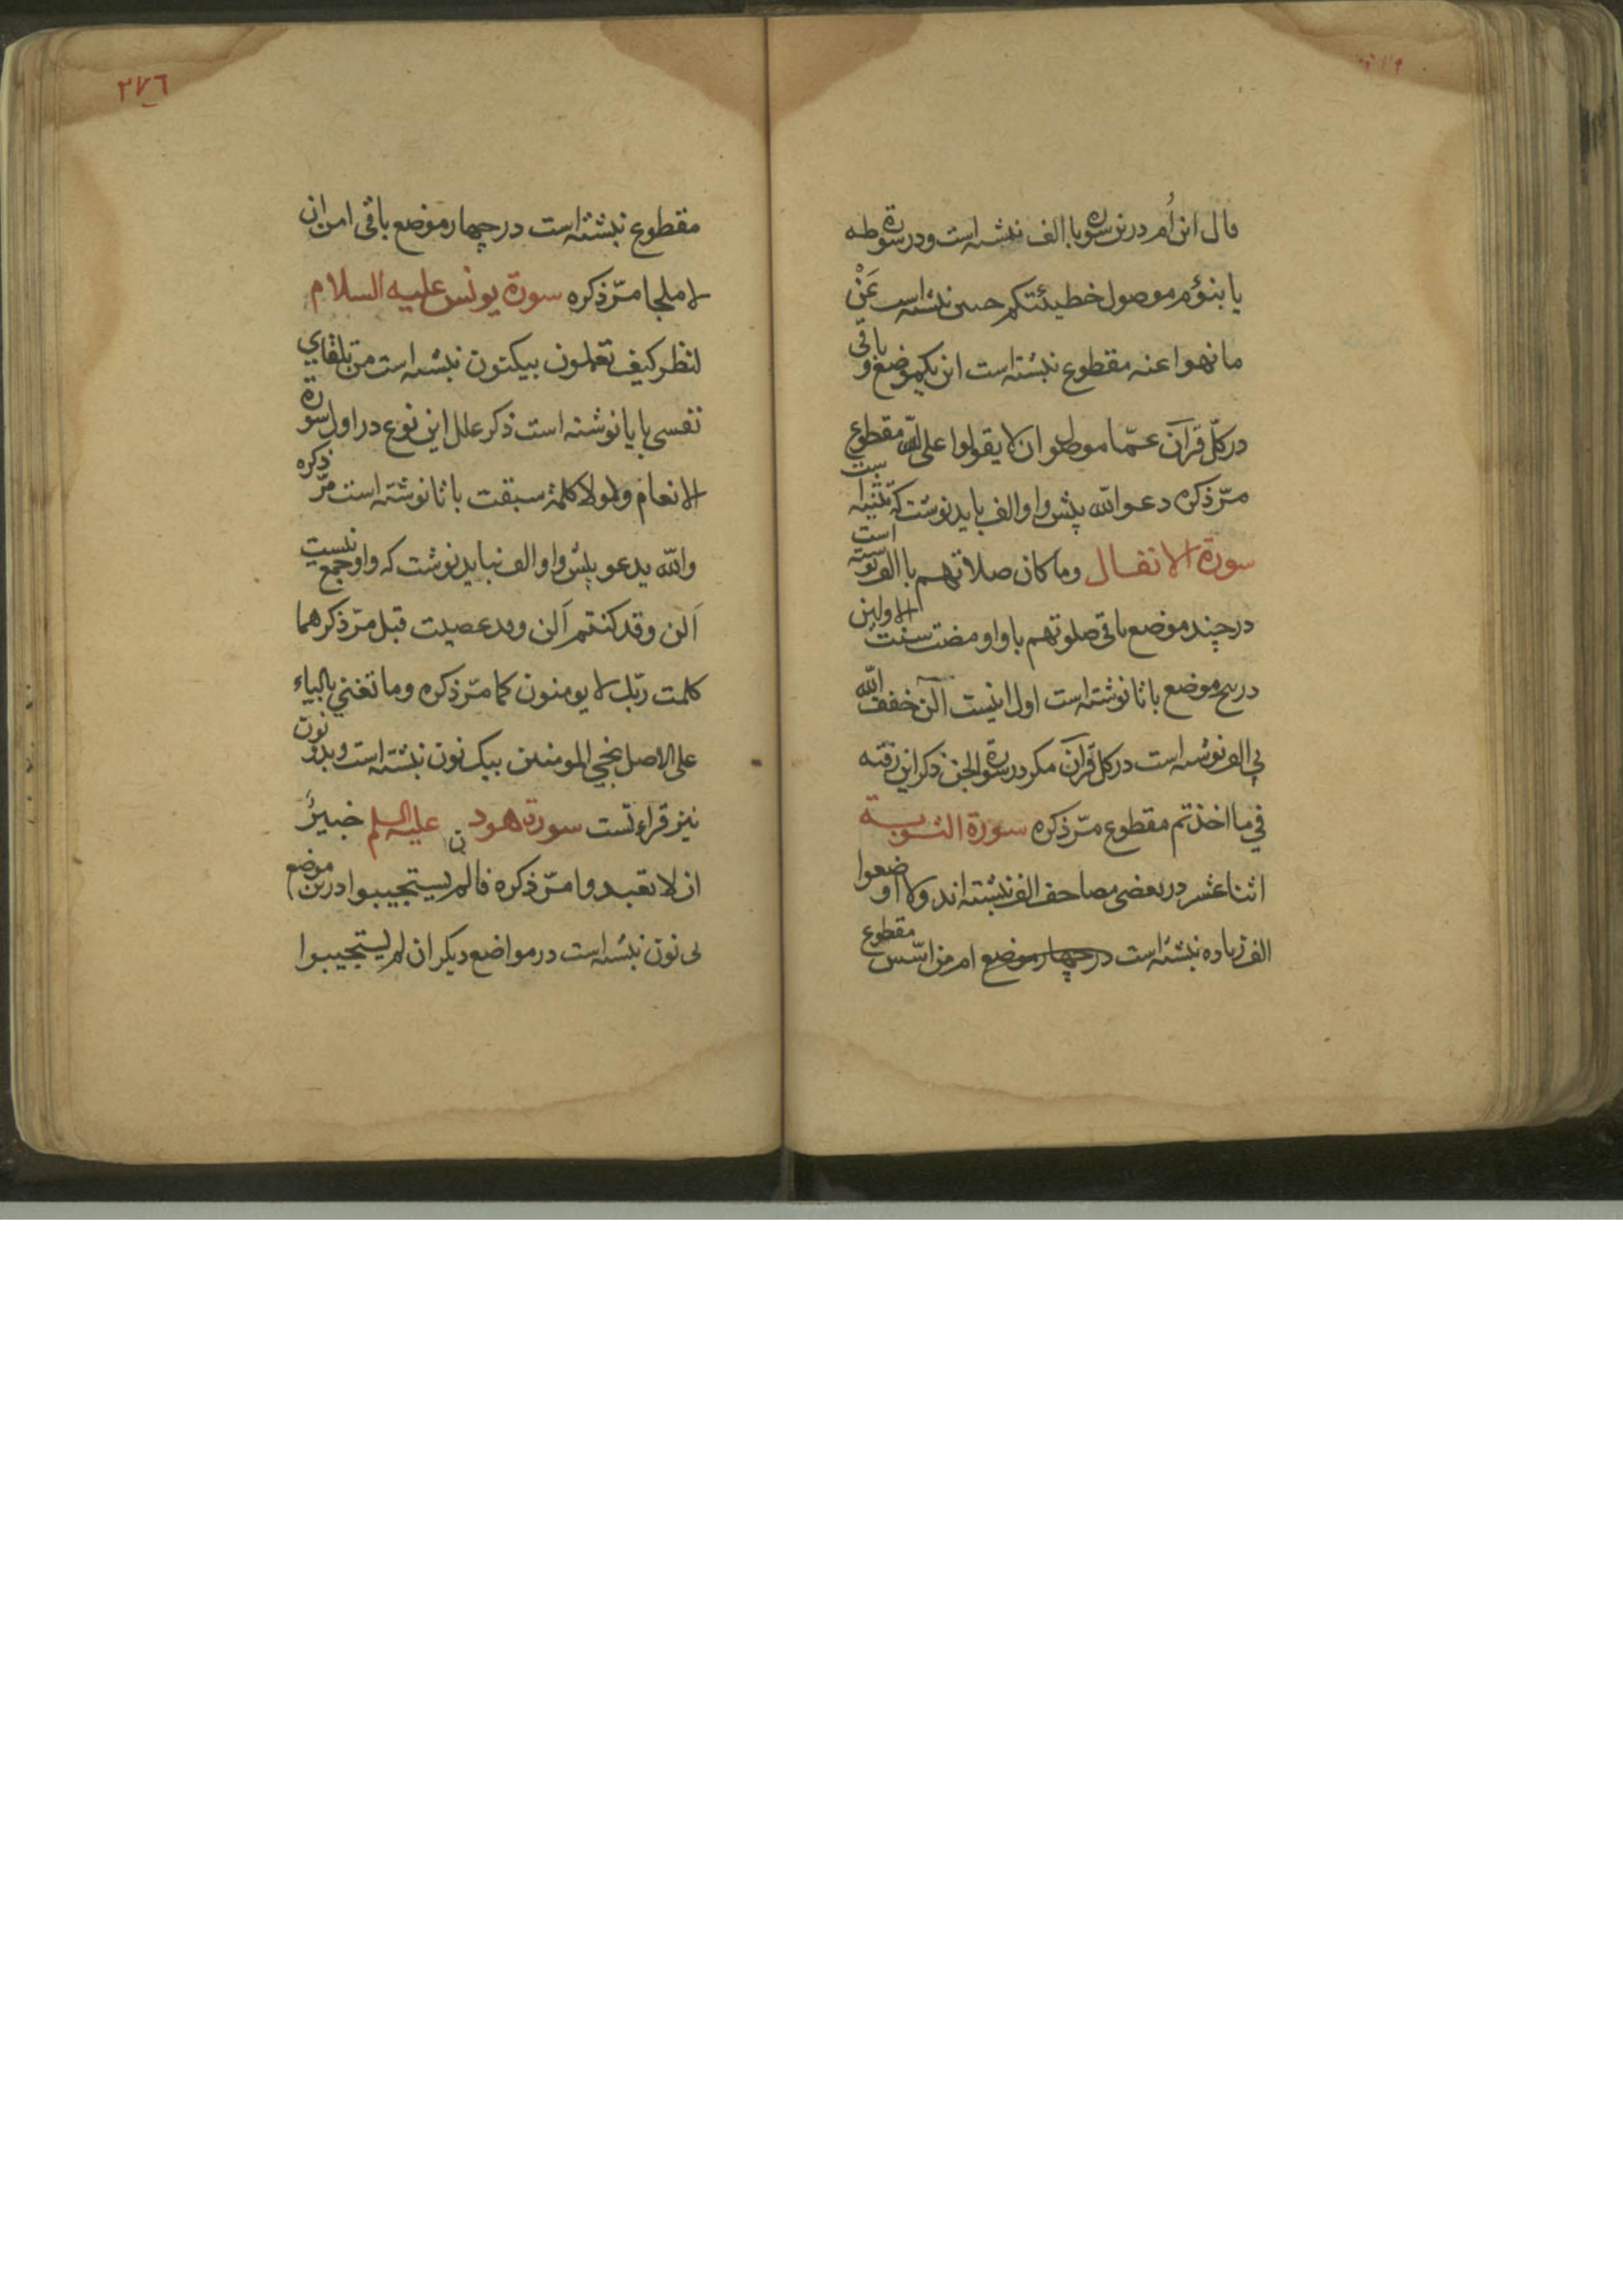 قال ابن اُم درین سوره با الف نبشته است و در سورة طه
یا بنؤم موصول خطیئتکم حسن نبشته است عَنْ
ما نهوا عنه مقطوع نبشته است این یکموضع و باقی
در کلّ قرآن عمّا موصول و ان لا یقولوا علی الله مقطوع
مرّ ذکره دعوا الله پیش واو الف باید نوشت که تثنیه است
سورة الانفال وما کان صلاتهم با الف نوشته است
در چند موضع باقی صلوتهم با واو مضت سنت الاولین
در پنج موضع با تا نوشته است اول اینست الٓن خفف الله
بی الف نوشته است در کل قرآن مکر در سورة الجن ذکر این رفته
في ما اخذتم مقطوع مرّ ذکره سورة التوبة
اثنا عشر در بعضی مصاحف الف نبشته اند ولا اوضعوا
الف زیاده نبشته است در چهار موضع ام من اسّس مقطوع
٢٧٦
مقطوع نبشته است در چهار موضع باقی امر ان
لا ملجا مرّ ذکره سورة یونس علیه السلام
لنظر کیف تعملون بیکنون نبشته است من تلقاي
نفسی با یا نوشته است ذکر علل این نوع در اول سورة
الانعام ولولا کلمة سبقت با تا نوشته است مرّ ذکره
والله یدعو پیش واو الف نباید نوشت که واو جمع نیست
آلن وقد کنتم آلن وقد عصیت قبل مرّ ذکرهما
کلمت ربّك لا یومنون کما مرّ ذکره وما تغني بالیاء
علی الاصل ننجي المومنین بیک نون نبشته است و بدو نون
نیز قراءتست سورة هود علیه السلم خبیرٌ
ان لا تعبدوا مرّ ذکره فالم یستجیبوا درین موضع
بی نون نبشته است در مواضع دیکر ان لم یستجیبوا